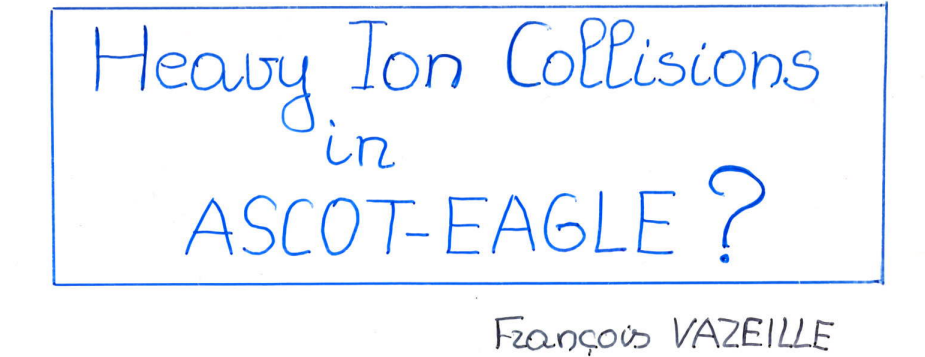 Heavy Ion Collisions
in
ASCOT-EAGLE ?
François VAZEILLE